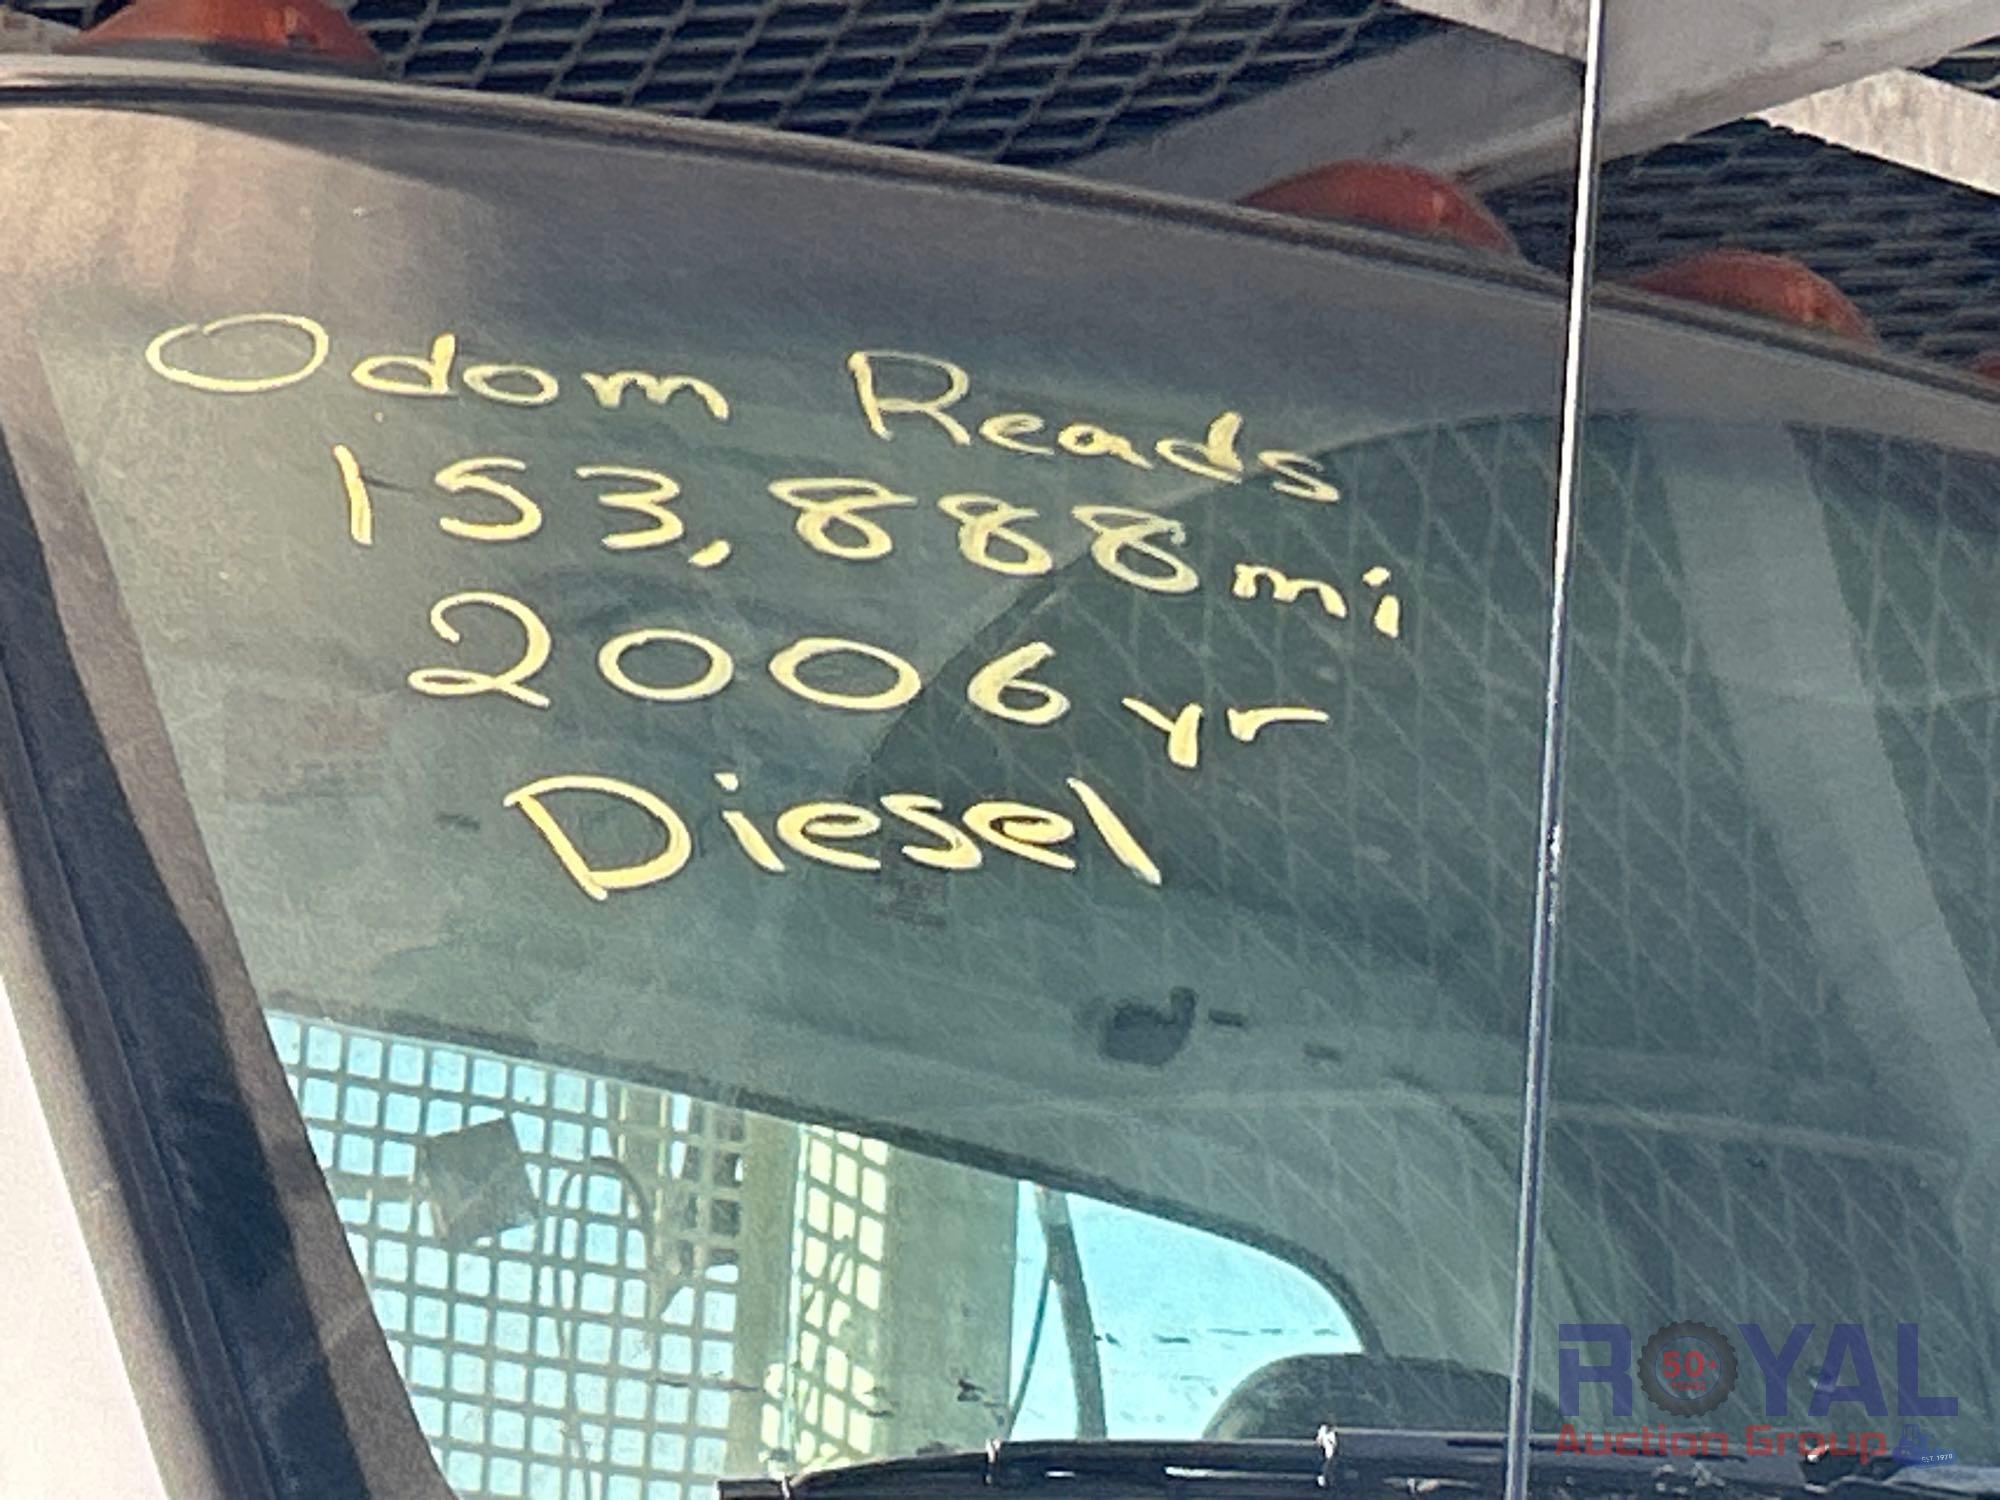 Odom Reads
153,888 mi
2006 yr
Diesel
ROYAL
50+
YEARS
Auction Group
EST. 1970